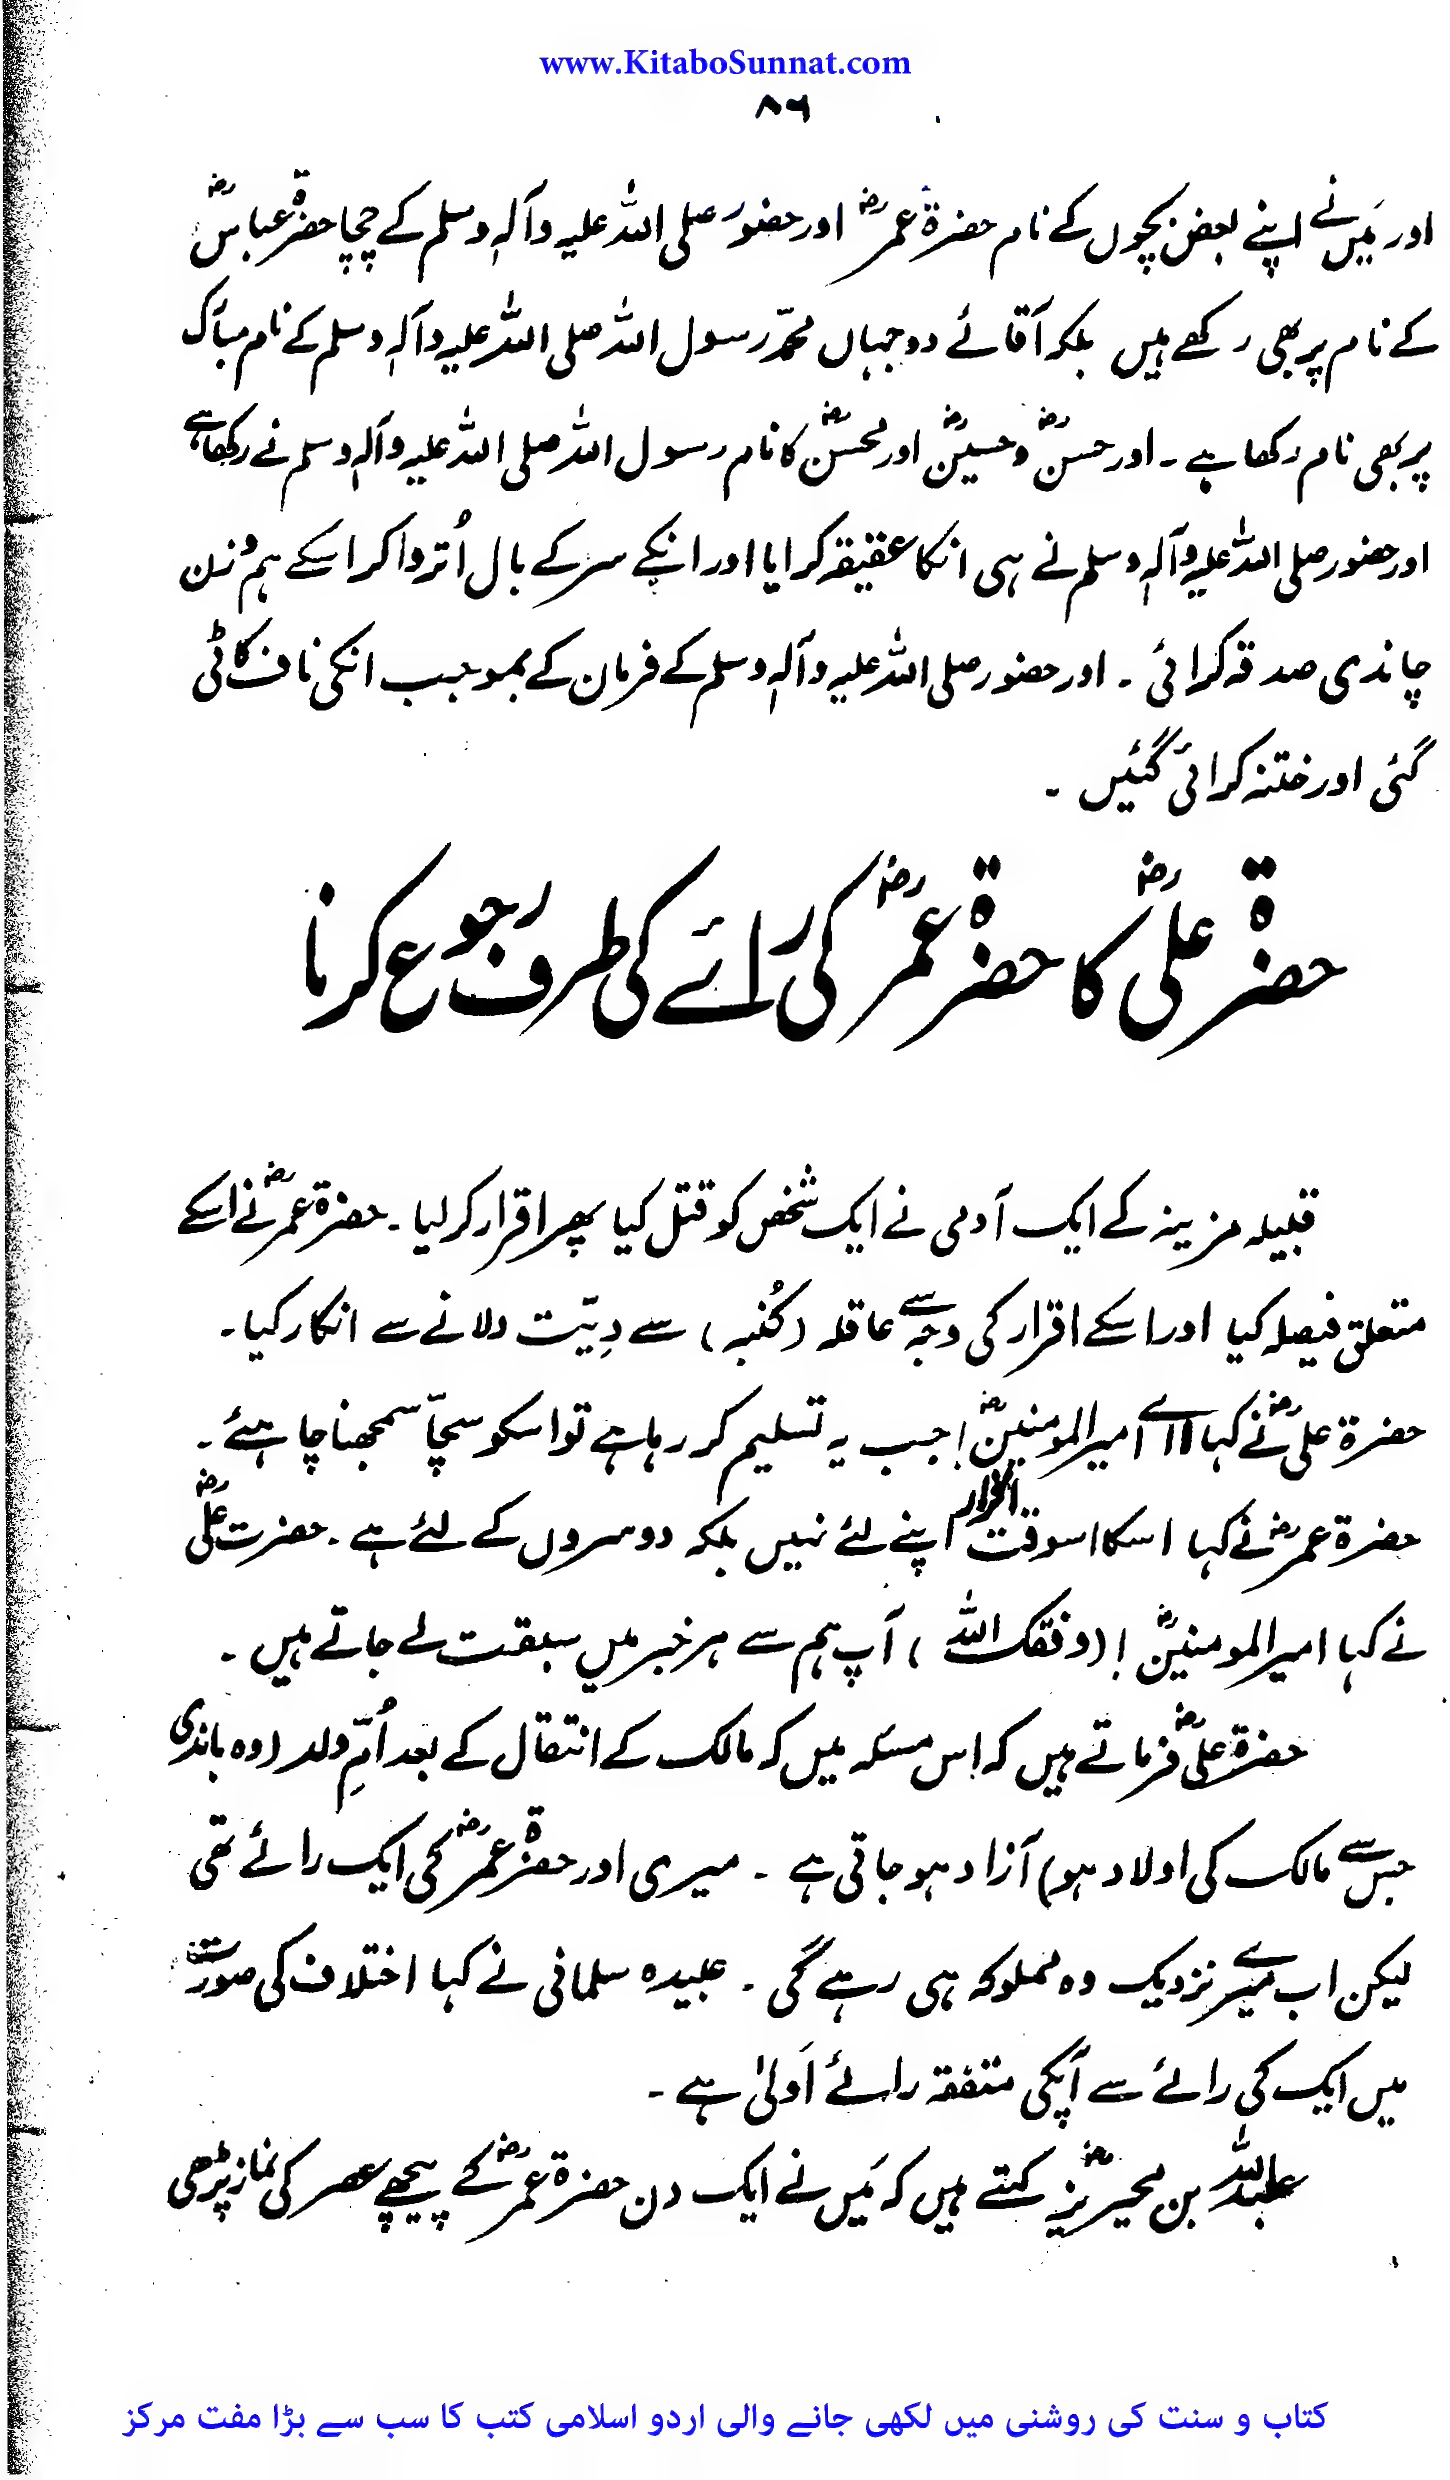 www.KitaboSunnat.com
۸۶
اور مَیں نے اپنے بعض بچوں کے نام حضرۃ عمرؓ اور حضور صلی اللہ علیہ وآلہٖ وسلم کے چچا حضرۃ عباسؓ
کے نام پر بھی رکھے ہیں بلکہ آقائے دوجہاں محمدؐ رسول اللہ صلی اللہ علیہ وآلہٖ وسلم کے نام مبارک
پر بھی نام رکھا ہے ۔ اور حسنؓ وحسینؓ اور محسنؓ کا نام رسول اللہ صلی اللہ علیہ وآلہٖ وسلم نے رکھا ہے
اور حضور صلی اللہ علیہ وآلہٖ وسلم نے ہی انکا عقیقہ کرایا اور انکے سر کے بال اُتروا کر اسکے ہم وزن
چاندی صدقہ کرائی ۔ اور حضور صلی اللہ علیہ وآلہٖ وسلم کے فرمان کے بموجب انکی ناف کاٹی
گئی اور ختنہ کرائی گئیں ۔
حضرۃ علیؓ کا حضرۃ عمرؓ کی رائے کی طرف رجوع کرنا
قبیلہ مزینہ کے ایک آدمی نے ایک شخص کو قتل کیا پھر اقرار کر لیا ۔ حضرۃ عمرؓ نے اسکے
متعلق فیصلہ کیا اور اسکے اقرار کی وجہ سے عاقلہ (کُنبہ) سے دِیّت دلانے سے انکار کیا ۔
حضرۃ علیؓ نے کہا اے امیرالمومنینؓ! جب یہ تسلیم کر رہا ہے تو اسکو سچّا سمجھنا چاہئے ۔
حضرۃ عمرؓ نے کہا اسکا اسوقت اقرار اپنے لئے نہیں بلکہ دوسروں کے لئے ہے ۔ حضرت علیؓ
نے کہا امیرالمومنینؓ ! (وفقک اللہ ) آپ ہم سے ہر خبر میں سبقت لے جاتے ہیں ۔
حضرۃ علیؓ فرماتے ہیں کہ اِس مسئلہ میں کہ مالک کے انتقال کے بعد اُمِّ ولد (وہ باندی
جس سے مالک کی اولاد ہو) آزاد ہو جاتی ہے ۔ میری اور حضرۃ عمرؓ کی ایک رائے تھی
لیکن اب میرے نزدیک وہ مملوکہ ہی رہے گی ۔ عبیدہ سلمانی نے کہا اختلاف کی صورت
میں ایک کی رائے سے آپکی متفقہ رائے اَولیٰ ہے ۔
عبداللہ بن محیریزؓ کہتے ہیں کہ مَیں نے ایک دن حضرۃ عمرؓ کے پیچھے عصر کی نماز پڑھی
کتاب و سنت کی روشنی میں لکھی جانے والی اردو اسلامی کتب کا سب سے بڑا مفت مرکز